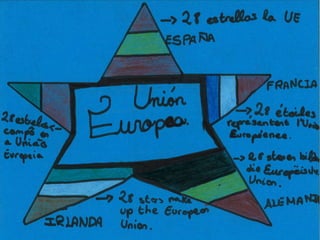 28 estrellas la UE
ESPAÑA
Unión
Europea
FRANCIA
28 étoiles
représentent l'Union
Européenne.
28 
compõ a
União
Europeia
28 
die Europäische
Union.
ALEMANIA
28 stars make
up the European
Union.
IRLANDA